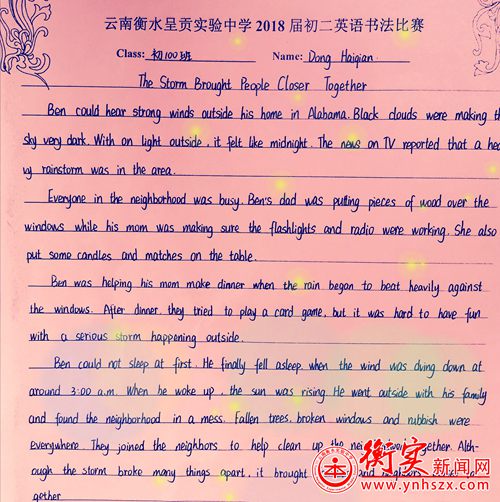 云南衡水呈贡实验中学 2018 届初二英语书法比赛
Class: 初100班 Name: Dong Haiqian
The Storm Brought People Closer Together
Ben could hear strong winds outside his home in Alabama. Black clouds were making th
sky very dark. With on light outside, it felt like midnight. The news on TV reported that a hea
vy rainstorm was in the area.
Everyone in the neighborhood was busy. Ben's dad was putting pieces of wood over the
windows while his mom was making sure the flashlights and radio were working. She also
put some candles and matches on the table.
Ben was helping his mom make dinner when the rain began to beat heavily against
the windows. After dinner, they tried to play a card game, but it was hard to have fun
with a serious storm happening outside.
Ben could not sleep at first. He finally fell asleep when the wind was dying down at
around 3:00 a.m. When he woke up, the sun was rising. He went outside with his family
and found the neighborhood in a mess. Fallen trees, broken windows and rubbish were
everywhere. They joined the neighbors to help clean up the together. Alth-
ough the storm broke many things apart, it brought and
gether
衡实新闻网
www.ynhszx.com